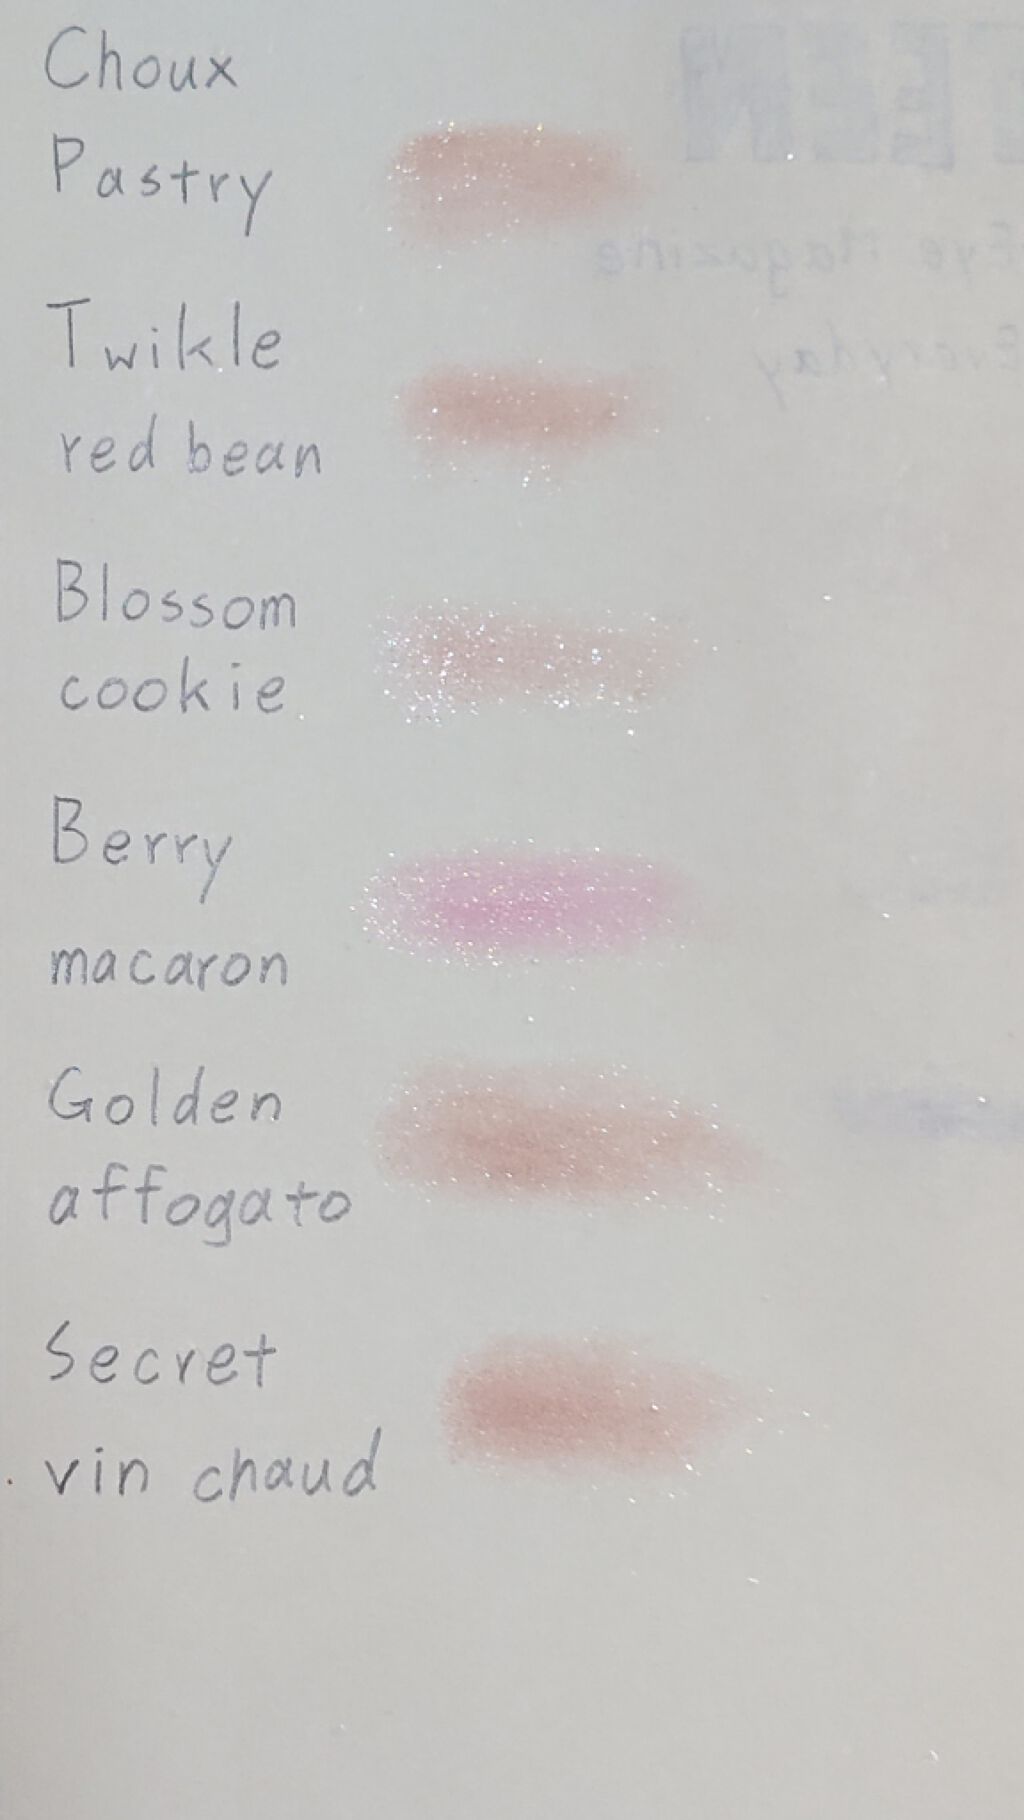 Choux
Pastry
Twikle
red bean
Blossom
cookie
Berry
macaron
Golden
affogato
Secret
vin chaud
Eye Magazine
Everyday